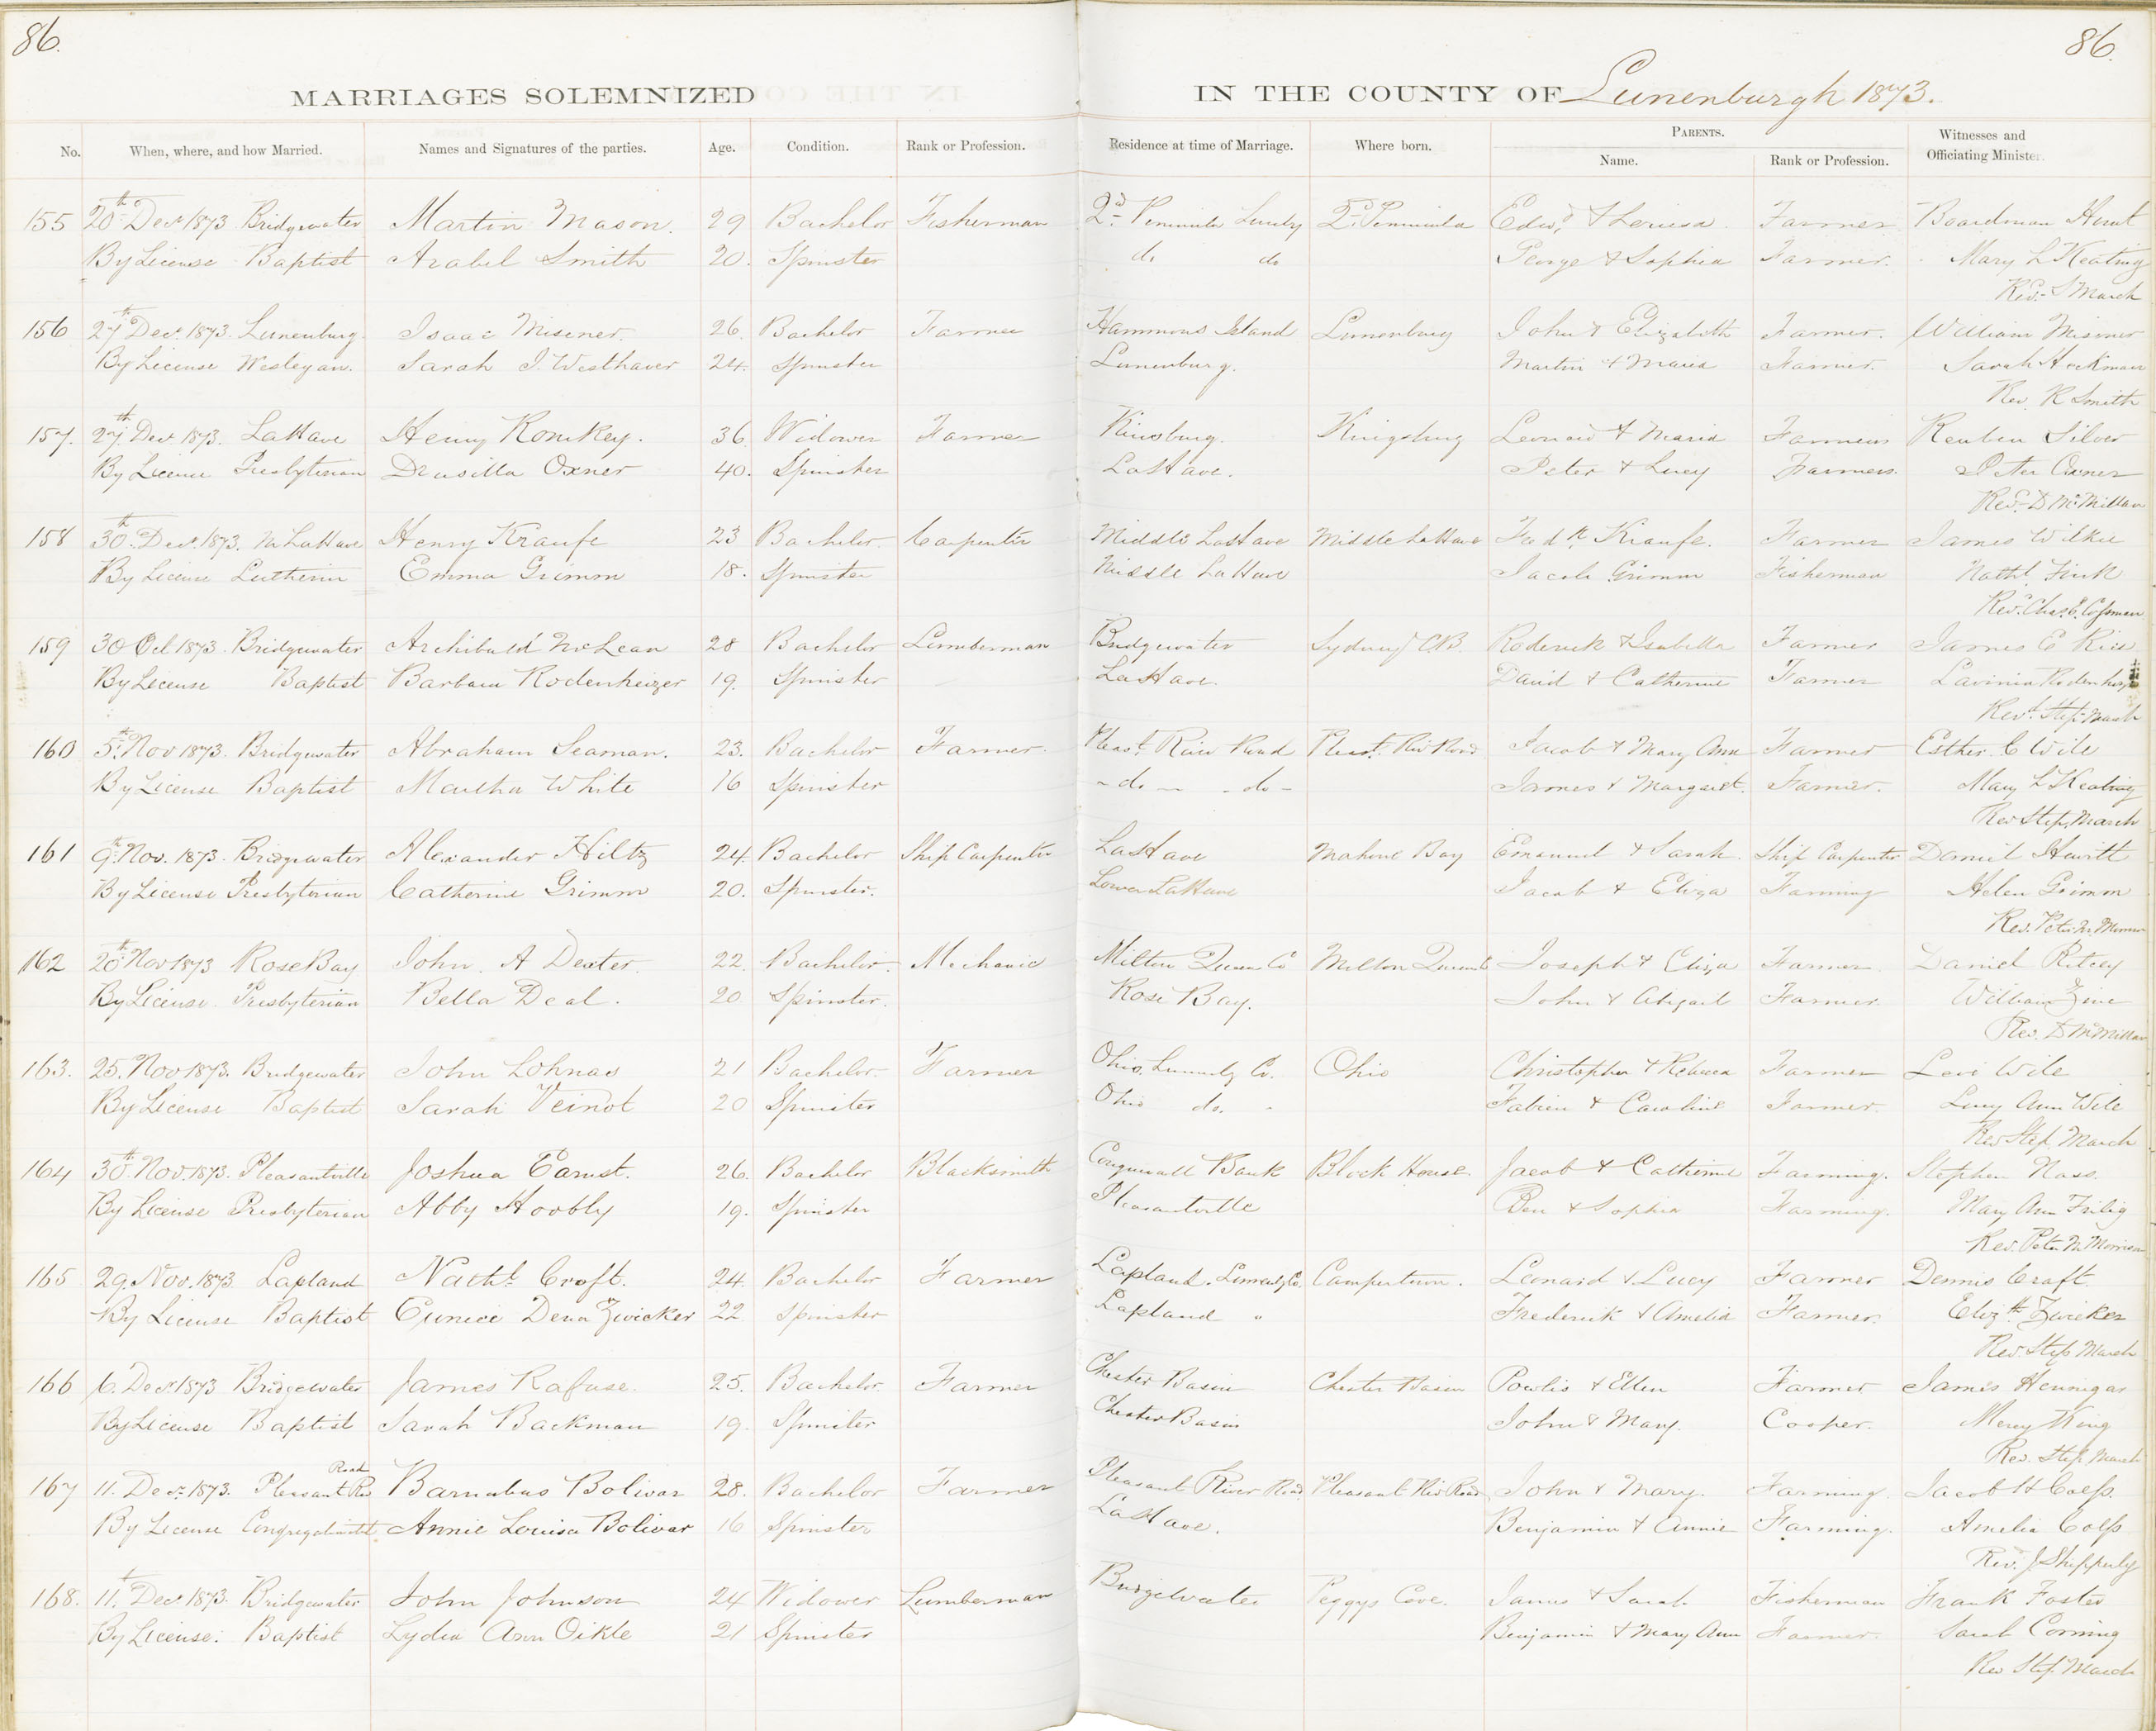 86.
86.
MARRIAGES SOLEMNIZED IN THE COUNTY OF Lunenburgh 1873.
No. When, where, and how Married. Names and Signatures of the parties. Age. Condition. Rank or Profession. Residence at time of Marriage. Where born. PARENTS. Name. Rank or Profession. Witnesses and Officiating Minister.
155 20th Decr 1873 Bridgewater Martin Mason. 29 Bachelor Fisherman 2d Peninsula Lunbg 2d Peninsula Edwd & Louisa Farmer Boardman Hunt
By License Baptist Arabel Smith 20. Spinster do do George & Sophia Farmer. Mary L Keating
Revd S March
156 27th Decr 1873. Lunenburg. Isaac Misener. 26. Bachelor Farmer Hammons Island Lunenburg John & Elizabeth Farmer. William Misener
By License Wesleyan. Sarah J. Westhaver 24. Spinster Lunenburg. Martin & Maria Farmer. Sarah Heckman
Rev. R Smith
157. 27th Decr 1873. LaHave Henry Romkey. 36 Widower Farmer Kingsburg. Kingsburg Leonard & Maria Farmers Reuben Silver
By License Presbyterian Drusilla Oxner 40. Spinster LaHave. Peter & Lucy Farmers. Peter Oxner
Revd D McMillan
158 30th Decr 1873. M LaHave Henry Kraufe 23 Bachelor. Carpenter Middle LaHave Middle LaHave Fredk Kraufe. Farmer James Wilkie
By License Lutherin Emma Grimm 18. Spinster Middle LaHave Jacob Grimm Fisherman Nathl Fink
Revd Chas E. Cossman
159 30 Oct 1873. Bridgewater Archibald McLean 28 Bachelor Lumberman Bridgewater Sydney C.B. Roderick & Isabella Farmer James E Rice
By License Baptist Barbara Rodenheizer 19. Spinster LaHave. David & Catherine Farmer Lavinia
Revd Step. March
160 5th Nov 1873. Bridgewater Abraham Seaman. 23. Bachelor Farmer. Pleast River Road Pleast Riv Road Jacob & Mary Ann Farmer Esther C Wile
By License Baptist Martha White 16 Spinster - do - - do - James & Margaret. Farmer. Mary L Keating
Rev Step. March
161 9th Nov. 1873. Bridgewater Alexander Hiltz 24. Bachelor Ship Carpenter LaHave Mahone Bay Emanuel & Sarah. Ship Carpenter Daniel Hewitt
By License Presbyterian Catherine Grimm 20. Spinster. Lower LaHave Jacob & Eliza Farming Helen Grimm
Rev. Peter M. Morrison
162 20th Nov 1873 Rose Bay John. A Dexter. 22. Bachelor. Mechanic Milton Queens Co Milton Queens Joseph & Eliza Farmer. Daniel Ritcey
By License. Presbyterian Bella Deal. 20 Spinster. Rose Bay. John & Abigail Farmer. William Zinc
Rev. D McMillan
163. 25. Nov 1873. Bridgewater John Lohnas 21 Bachelor. Farmer Ohio. Lunenbg Co. Ohio Christopher & Rebecca Farmer Levi Wile
By License Baptist Sarah Veinot 20 Spinster Ohio do. Fabien & Caroline Farmer. Lucy Ann Wile
Rev Step March
164 30th Nov. 1873. Pleasantville Joshua Earnst. 26. Bachelor Blacksmith Conquerall Bank Block House. Jacob & Catherine Farming. Stephen Nass.
By License Presbyterian Abby Hoobly 19. Spinster Pleasantville Ben & Sophia Farming. Mary Ann
Rev. Peter M Morrison
165 29. Nov. 1873 Lapland Nathl Croft. 24. Bachelor Farmer Lapland. Lunenbg Co. Camperdown. Leonard & Lucy Farmer Dennis Craft
By License Baptist Eunice Dena Zwicker 22 Spinster Lapland " Frederick & Amelia Farmer. Elizth Zwicker
Rev. Step March
166 6. Decr 1873 Bridgewater James Rafuse. 25. Bachelor Farmer Chester Basin Chester Basin Powlis & Ellen Farmer James Hennigar
By License Baptist Sarah Backman 19. Spinster Chester Basin John & Mary. Cooper. Mercy King
Rev. Step March
167 11. Decr 1873. Pleasant Riv Road Barnabus Bolivar 28. Bachelor Farmer Pleasant River Road Pleasant Riv Road John & Mary. Farming. Jacob H Colp.
By License Congregationalist Annie Louisa Bolivar 16 Spinster LaHave. Benjamin & Annie Farming. Amelia Colp
Revd J Shipperly
168. 11th Decr 1873. Bridgewater John Johnson 24 Widower Lumberman Bridgewater Peggys Cove. James & Sarah Fisherman Frank Foster
By License. Baptist Lydia Ann Oikle 21 Spinster Benjamin & Mary Ann Farmer. Sarah Corning
Rev Step. March